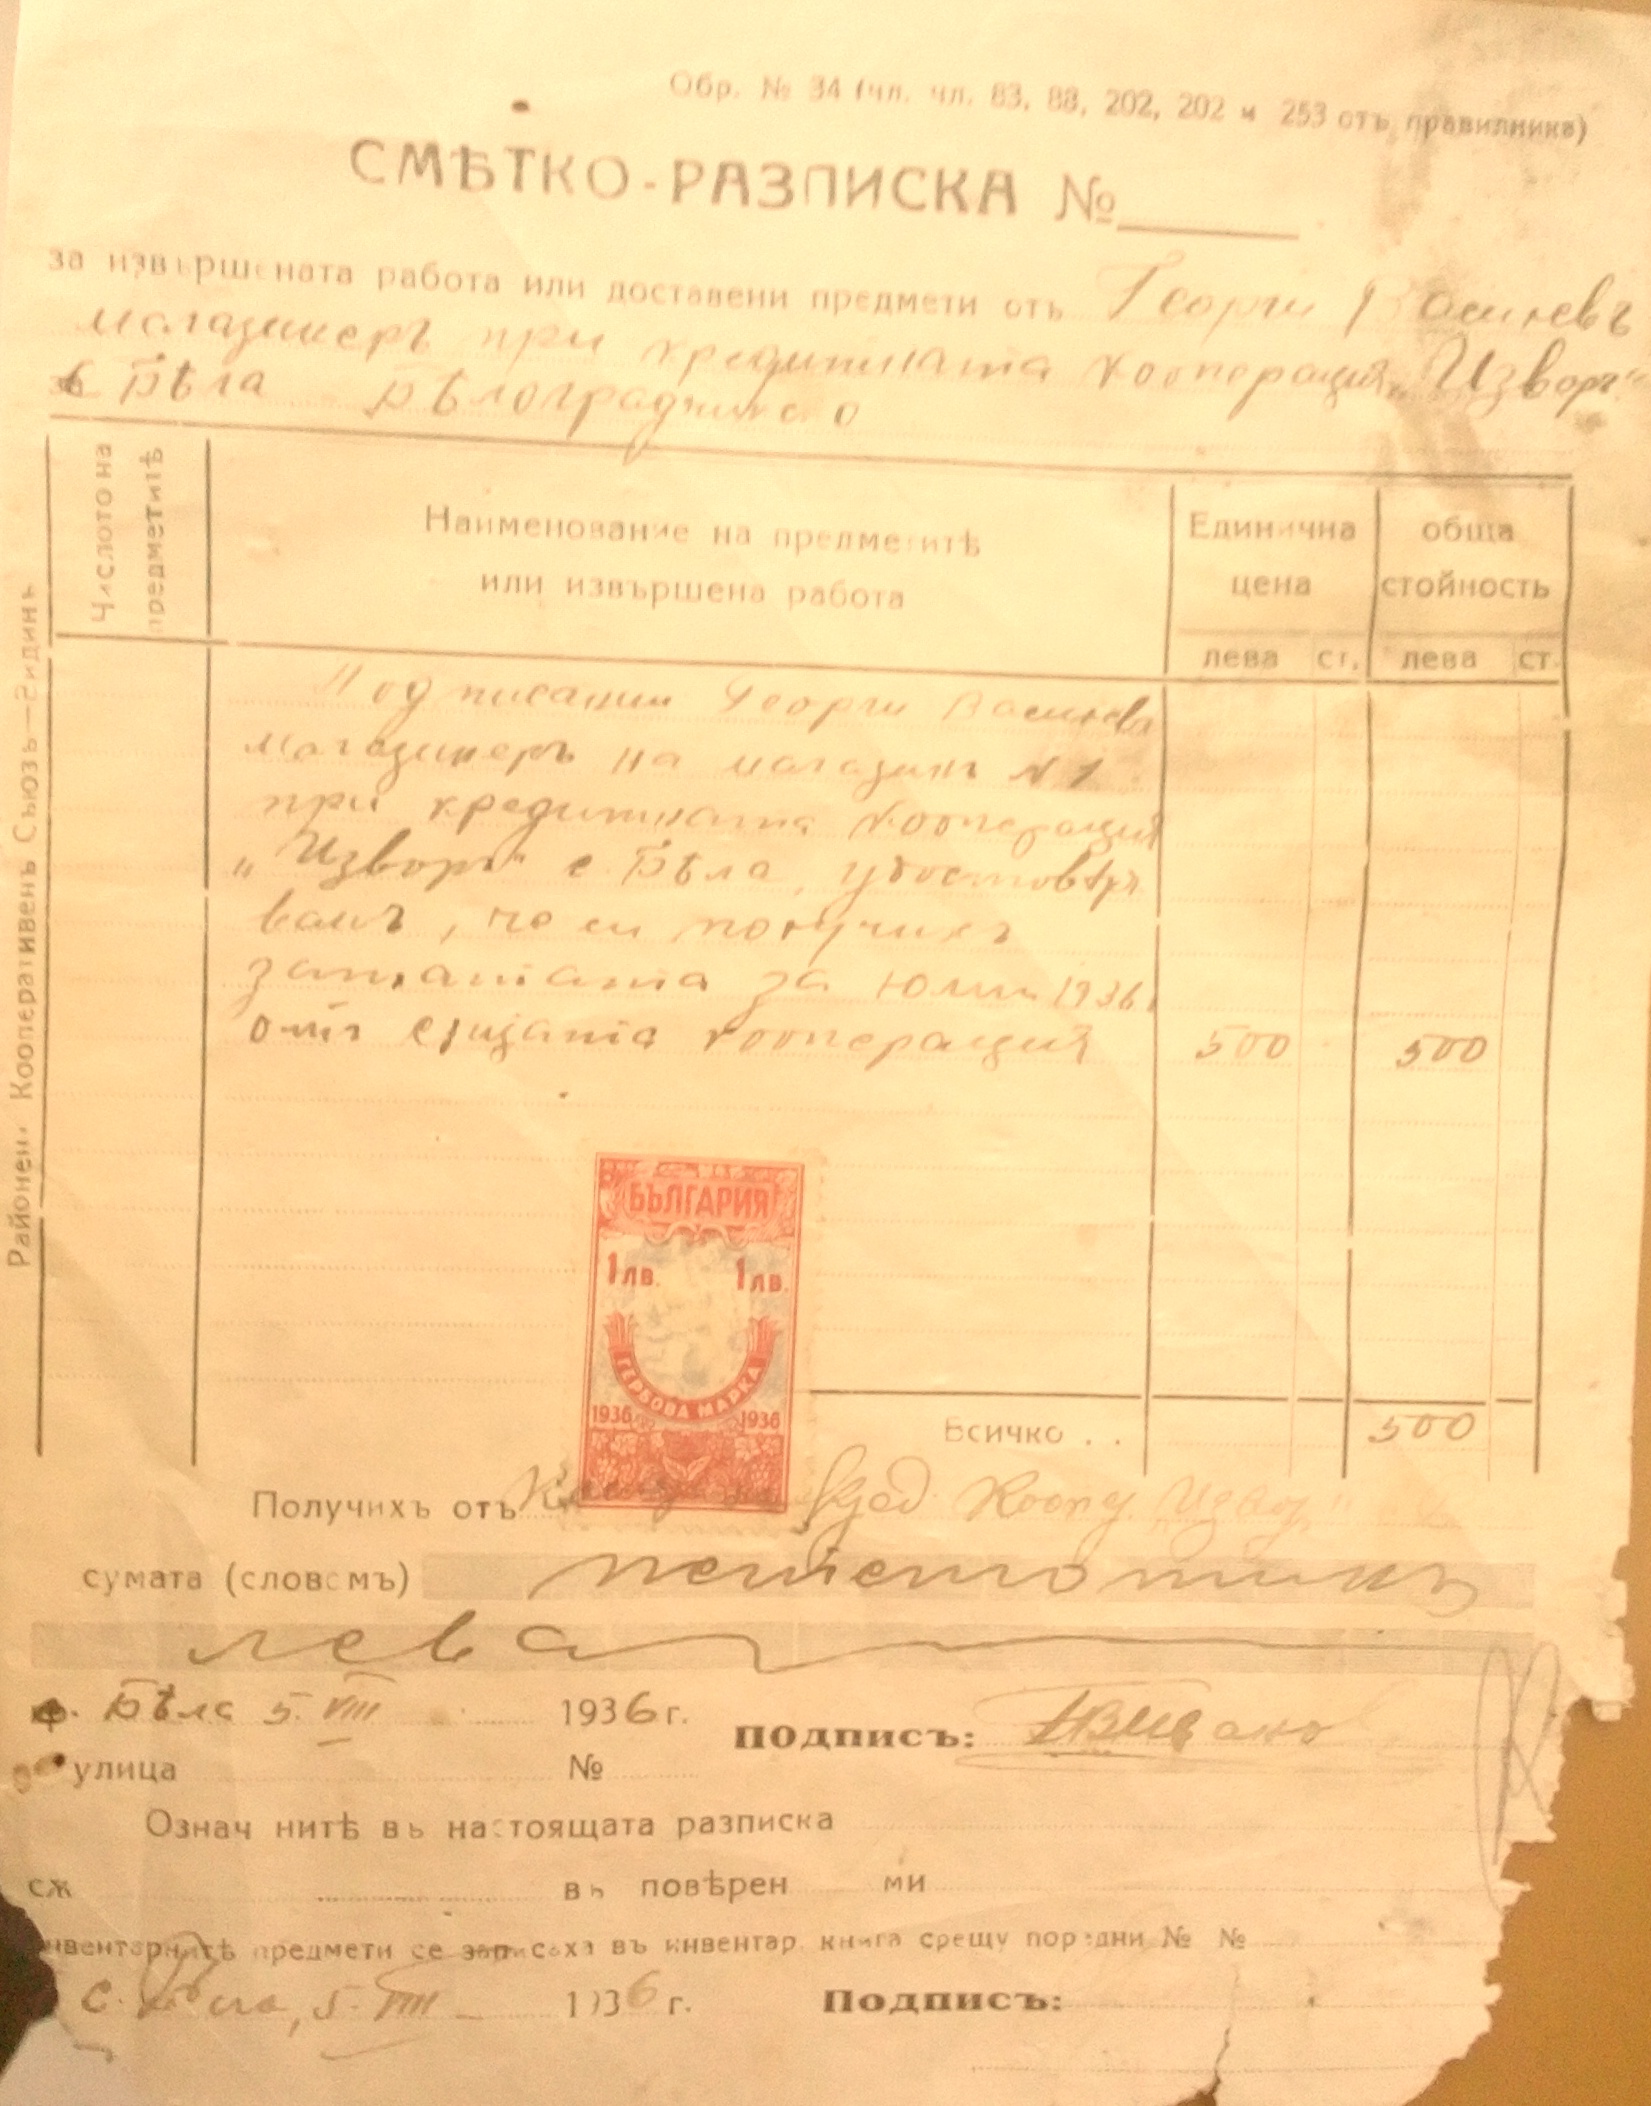 Обр. № 34 (чл. чл. 83, 88, 202, 202 и 253 отъ правилника)
СМѢТКО-РАЗПИСКА №
за извършената работа или доставени предмети отъ Георги Василевъ
магазинеръ при кредитната кооперация „Изворъ"
с. Бѣла Бѣлоградчишко
Числото на предметитѣ
Наименование на предметитѣ
или извършена работа
Единична цена
обща стойность
лева ст. лева ст.
Подписани Георги Василевъ
магазинеръ на магазинъ № 1
при кредитната кооперация
„Изворъ" с. Бѣла, удостовѣря
вамъ, че си получихъ
заплатата за юлий 1936
отъ същата кооперация 500 500
Районенъ Кооперативенъ Съюзъ—Видинъ
БЪЛГАРИЯ
1 лв. 1 лв.
ГЕРБОВА МАРКА
1936 1936
Всичко . . 500
Получихъ отъ Кред. Кооп. „Изворъ"
сумата (словомъ) петстотинъ
лева
Бѣла 5. VIII 1936 г. подписъ:
улица №
Означ нитѣ въ настоящата разписка
сѫ въ повѣрен ми
инвентарнитѣ предмети се записаха въ инвентар. книга срещу поредни № №
с. Бѣла, 5. VIII 1936 г. Подписъ: